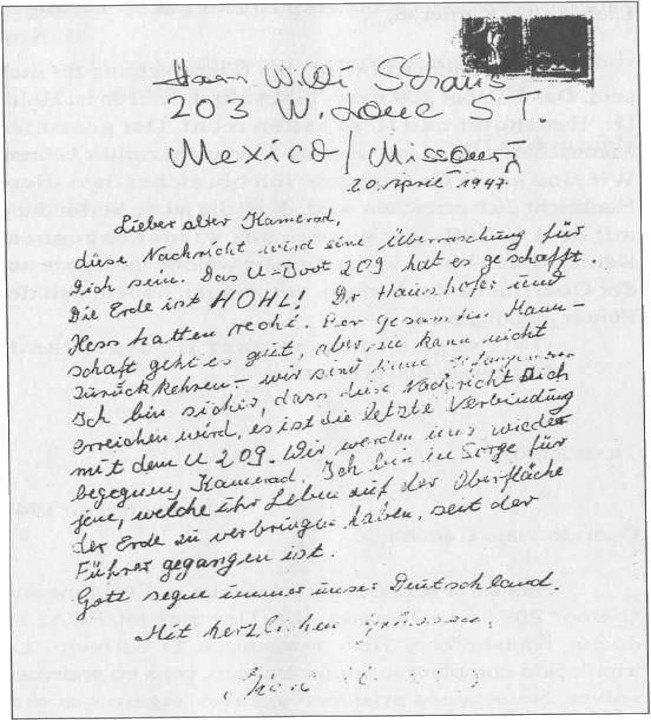 203 W. Love ST.
Mexico
20. April 1947
Lieber alter Kamerad.
diese Nachricht wird eine Überraschung für
Dich sein. Das U-Boot 209 hat es geschafft.
Die Erde ist HOHL! Dr Haushofer und
Hess hatten recht. Der gesamten Mann-
schaft geht es gut, aber sie kann nicht
zurückkehren - wir sind keine Gefangenen
Ich bin sicher, dass diese Nachricht Dich
erreichen wird, es ist die letzte Verbindung
mit dem U 209. Wir werden uns wieder
begegnen, Kamerad. Ich bin in Sorge für
jene, welche ihr Leben auf der Oberfläche
der Erde zu verbringen haben, seit der
Führer gegangen ist.
Gott segne immer unser Deutschland
Mit herzlichen Grüssen